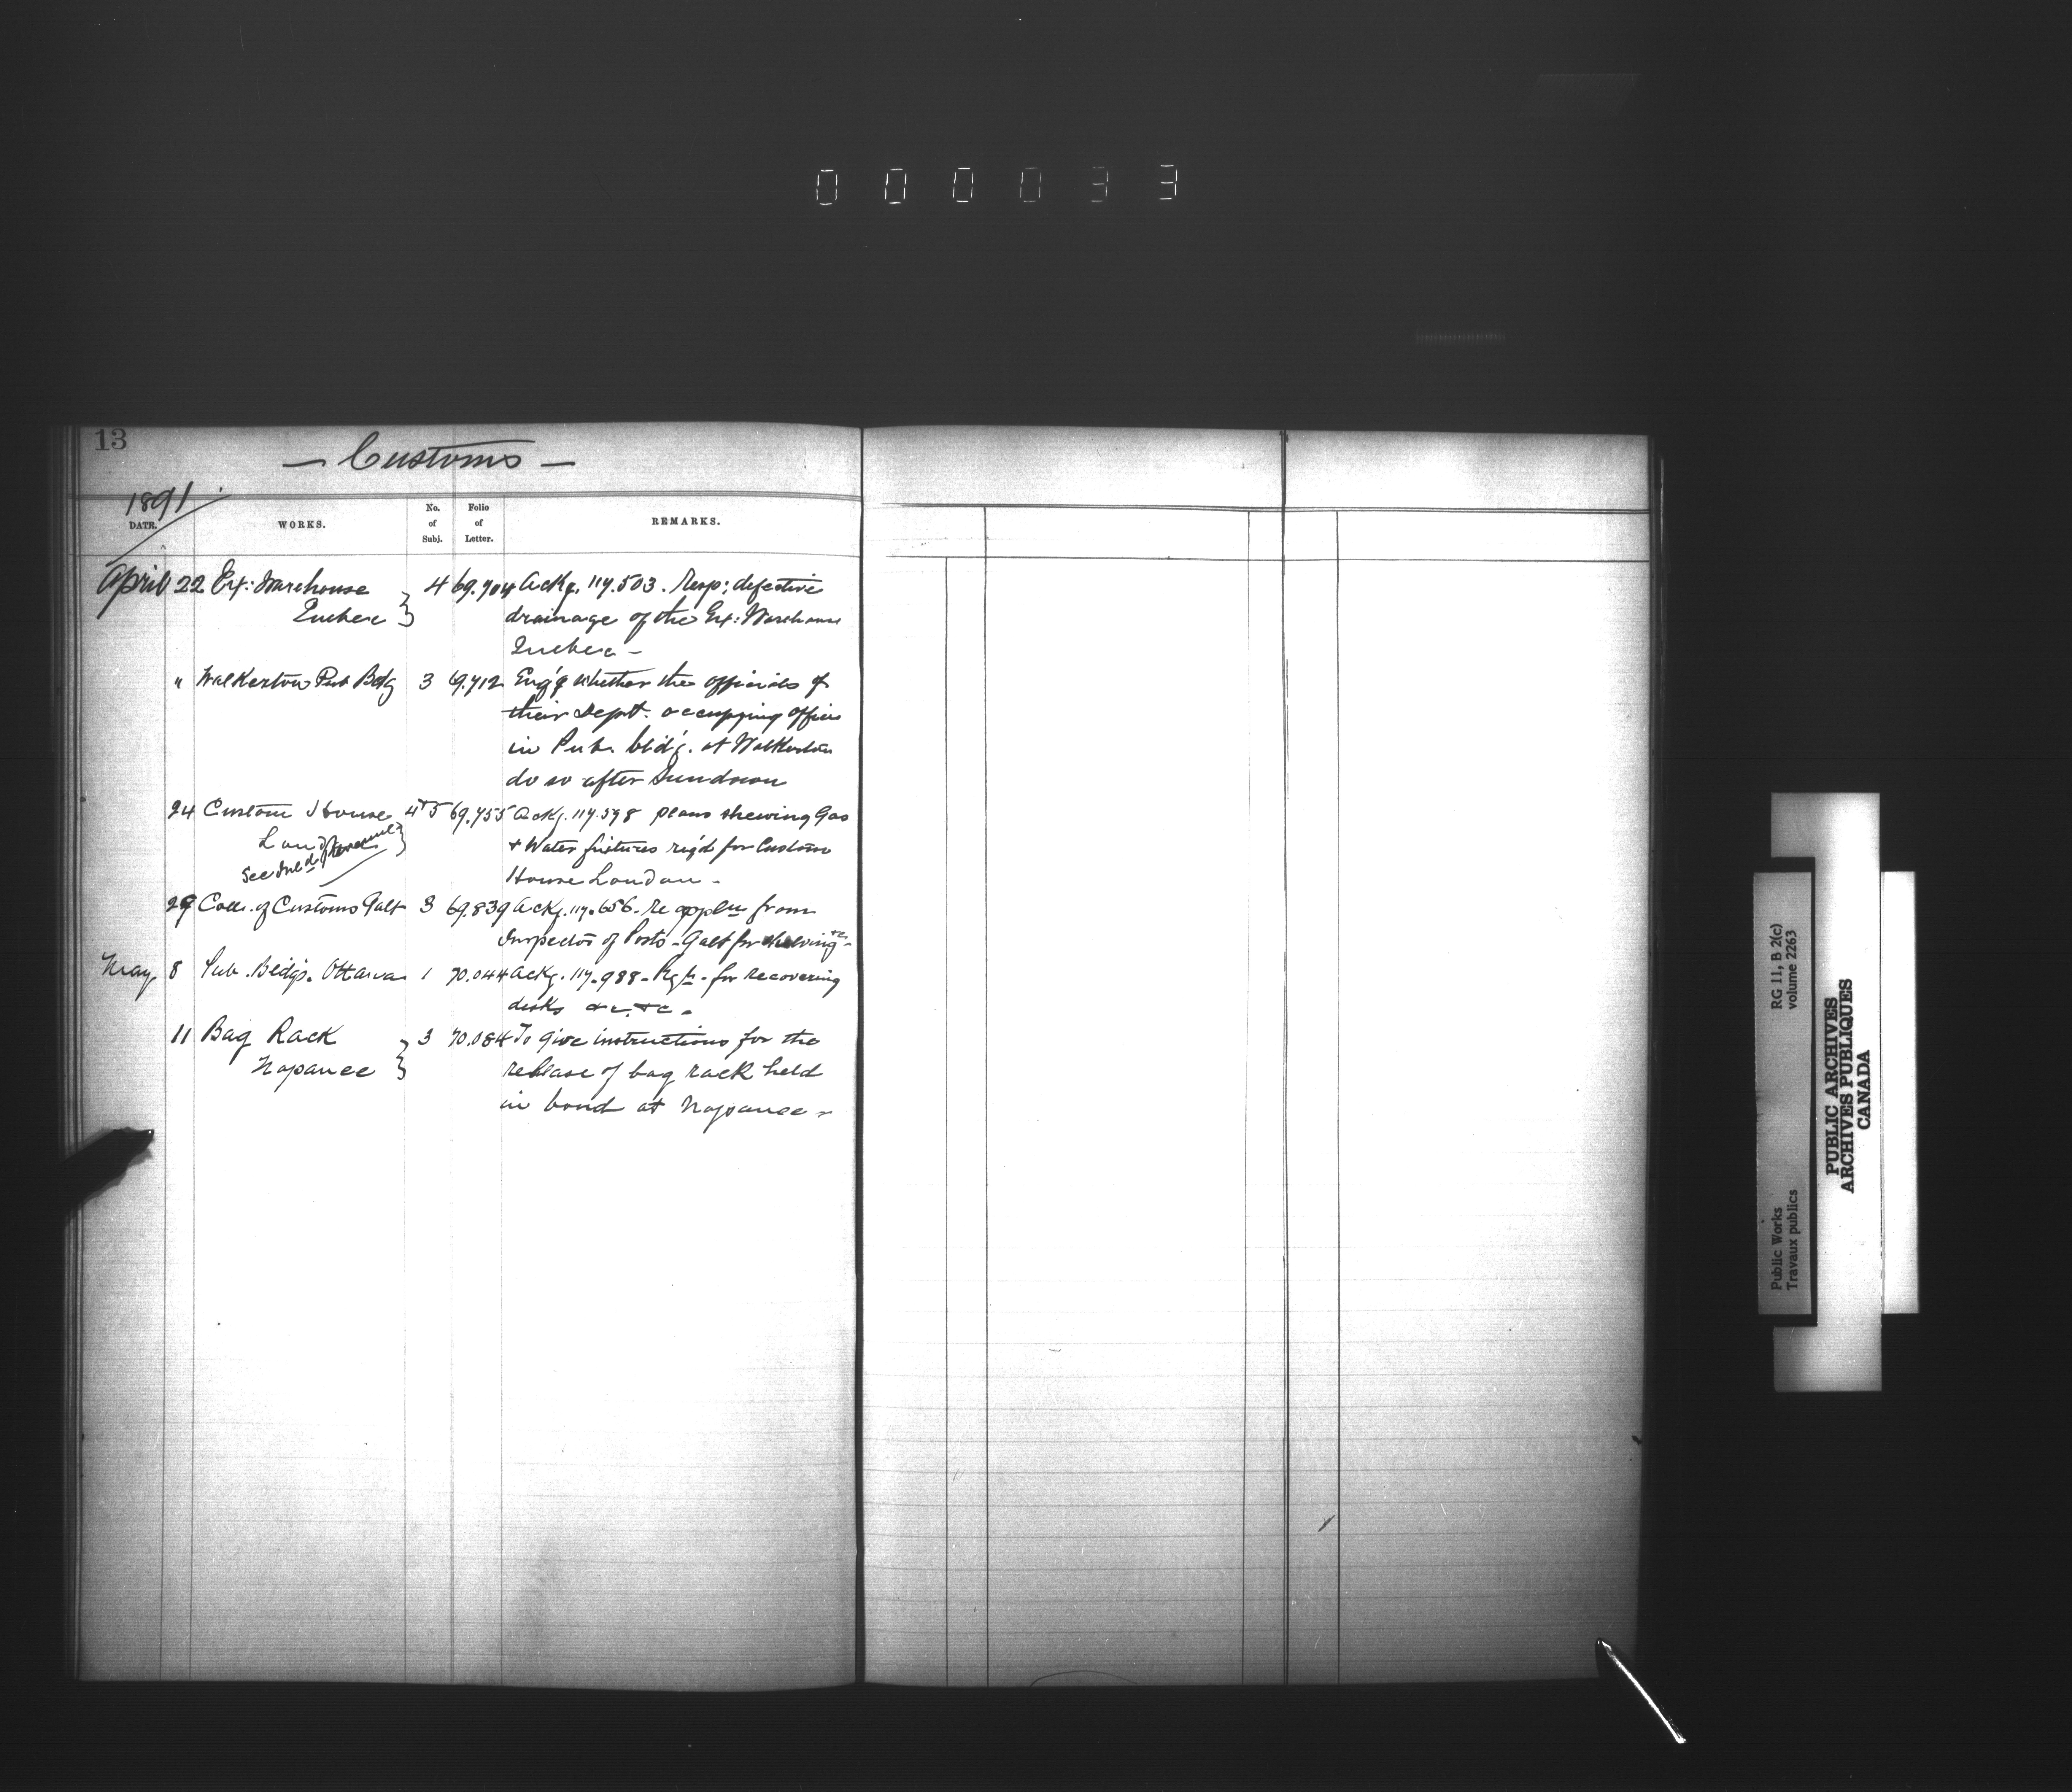 000033
13
— Customs —
1891
DATE. WORKS. No. of Subj. Folio of Letter. REMARKS.
April 22 Ex: Warehouse 4 69.704 Ackg. 117.503. Resp: defective
Quebec drainage of the Ex: Warehouse
Quebec –
" Walkerton Pub Bdg 3 69.712 Eng'g whether the officials of
their Dept. occupying offices
in Pub. bld'g. at Walkerton
do so after Sundown
24 Custom House 4+5 69.755 Ackg. 117.598 plans shewing Gas
London + Water fixtures req'd for Custom
See House London –
29 Coll. of Customs Galt 3 69.839 Ackg. 117.656. re appln from
Inspector of Ports – Galt for shelving &c –
May 8 Pub. Bldgs. Ottawa 1 70.044 Ackg. 117.988 – for recovering
desks &c. &c –
11 Bag Rack 3 70.084 To give instructions for the
Napanee release of bag rack held
in bond at Napanee –
RG 11, B 2(c)
volume 2263
Public Works
Travaux publics
PUBLIC ARCHIVES
ARCHIVES PUBLIQUES
CANADA